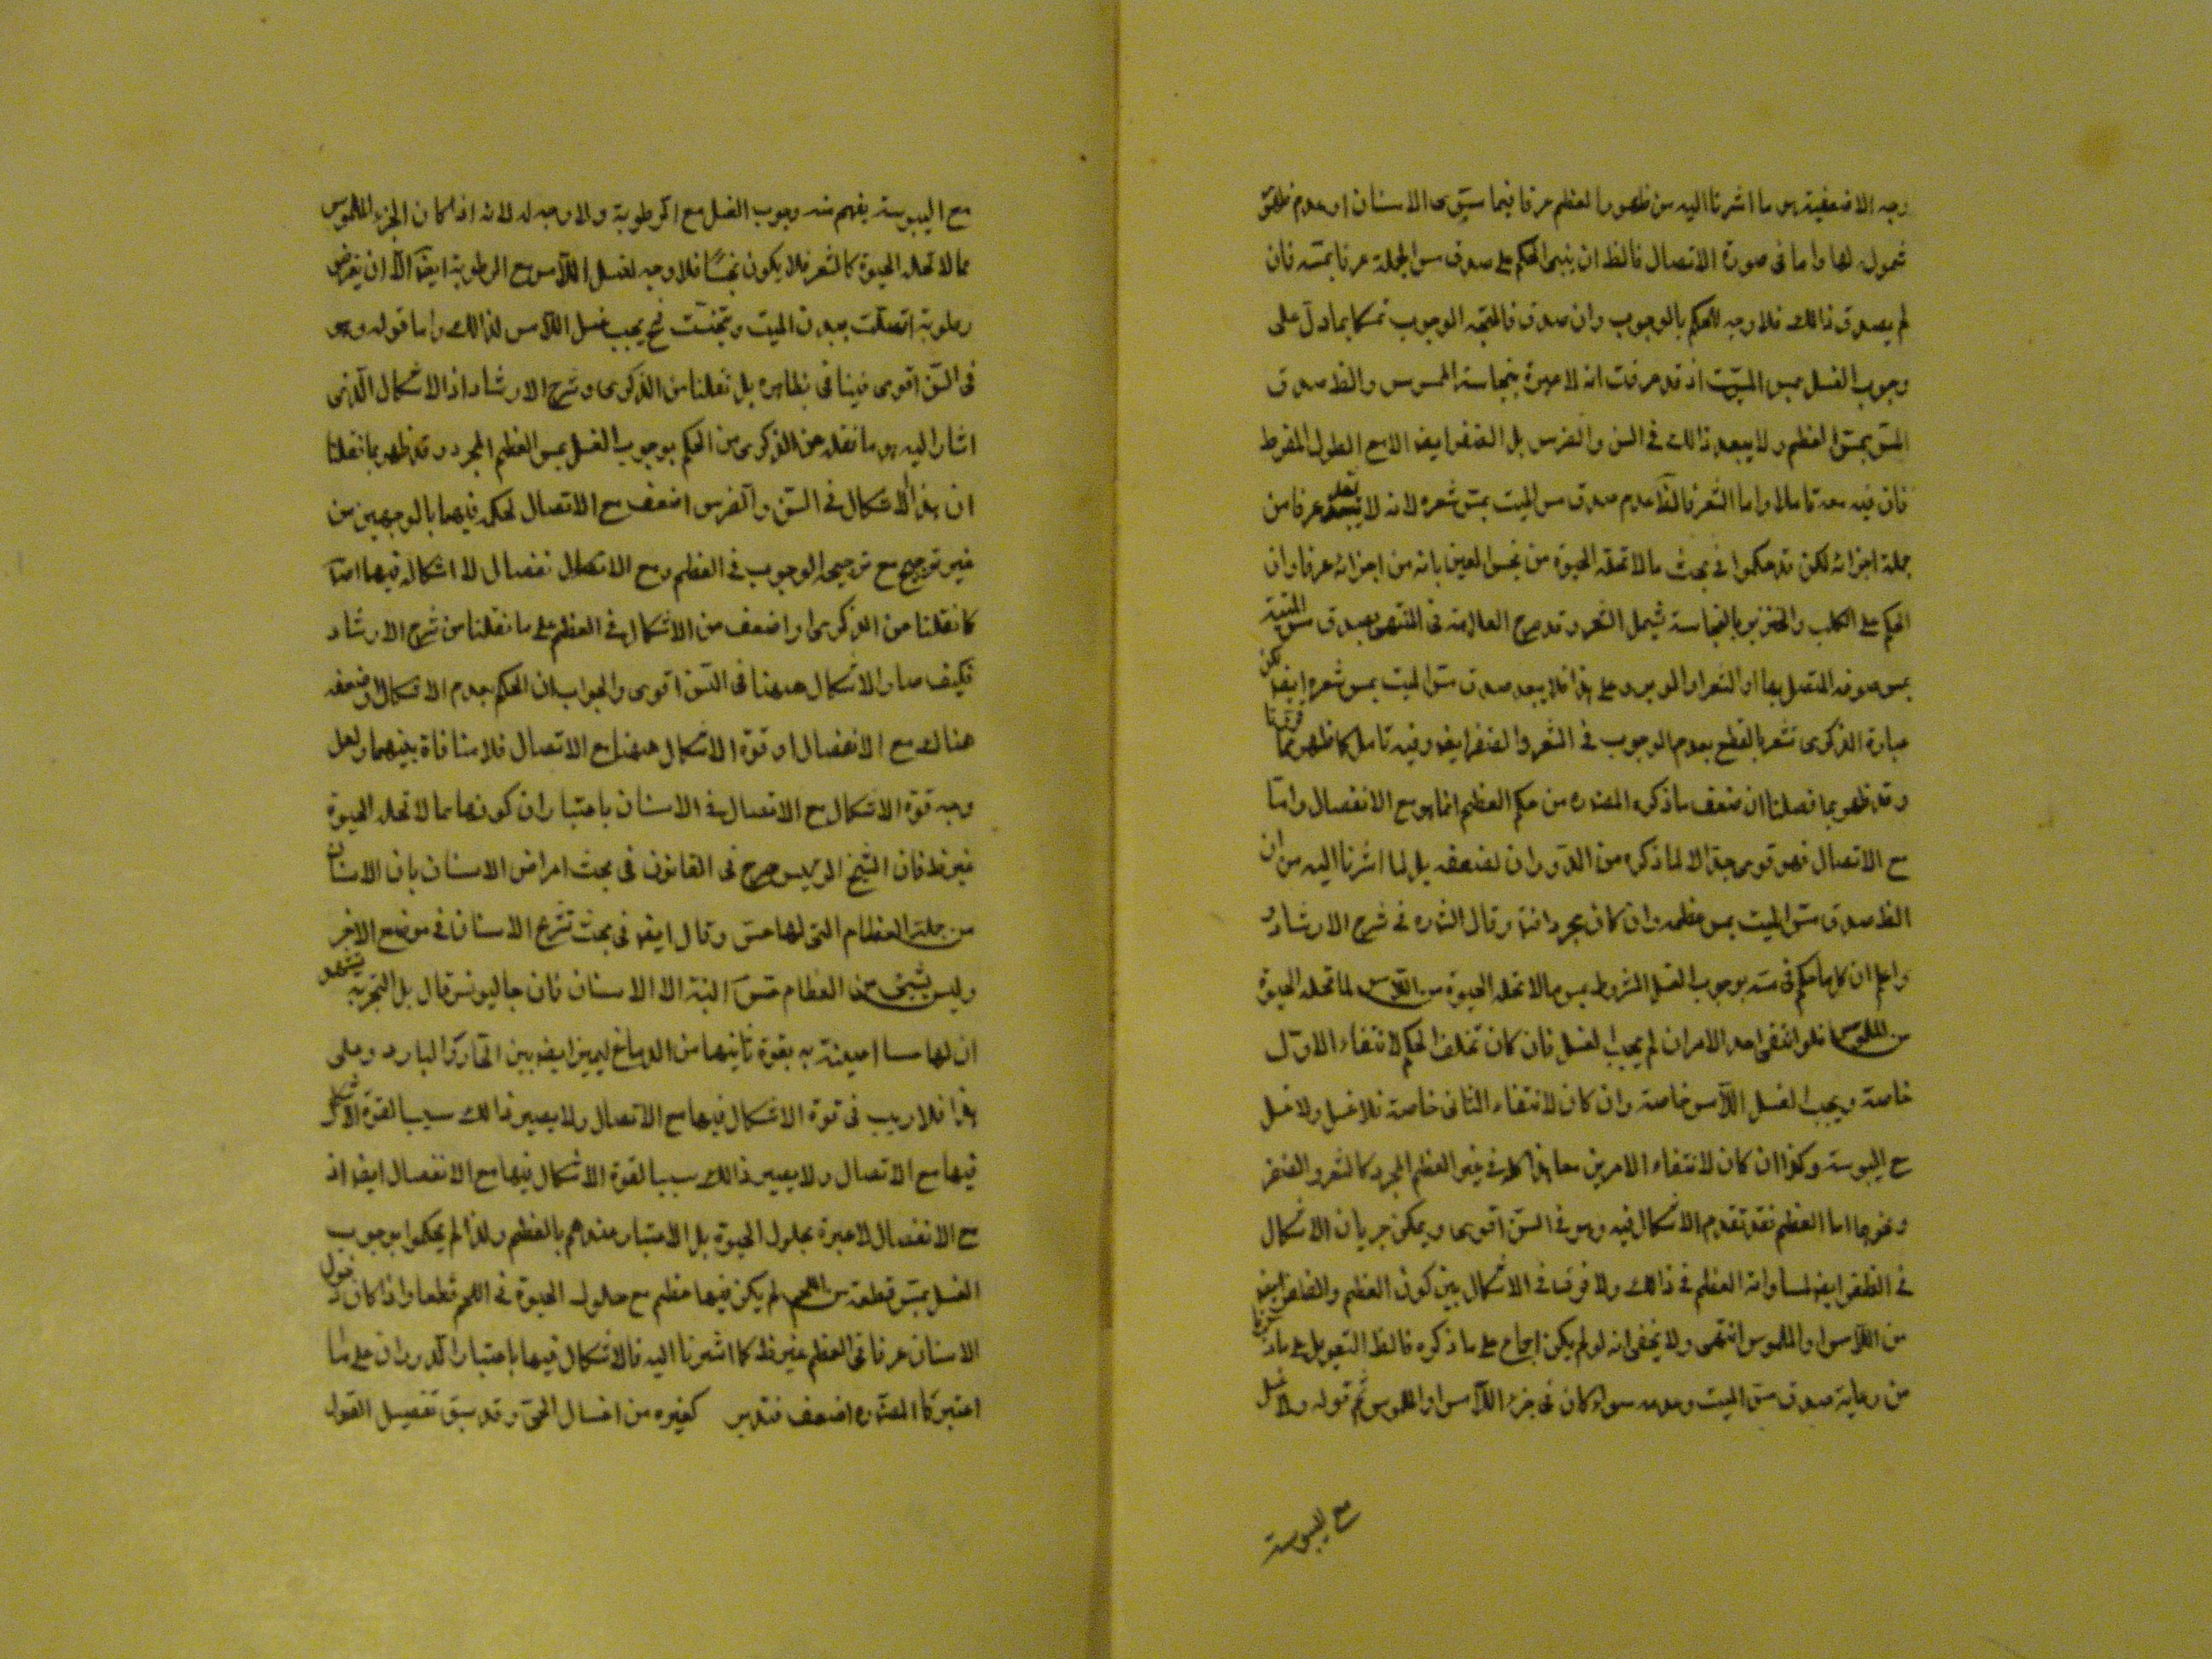 وجه الاضعفية هو ما اشرنا اليه من ظهور العظم عرفا فيما سوى الاسنان او عدم ظهور
شموله لها واما فى صورة الاتصال فالظ ان يبنى الحكم على صدق مس الجملة عرفا بمسه فان
لم يصدق ذالك فلا وجه للحكم بالوجوب وان صدق فالمتجه الوجوب تمسكا بما دل على
وجوب الغسل بمس الميت اذ قد عرفت انه لا عبرة بنجاسة الممسوس والظ صدق
المس بمس العظم ولا يبعد ذالك فى السن والضرس بل الظفر ايضا الا مع الطول المفرط
فان فيه معه تاملا واما الشعر فالظ عدم صدق مس الميت بمس شعره لانه لا يعد عرفا من
جملة اجزائه لكن قد حكموا فى بحث ما لا تحله الحيوة من نجس العين بانه من اجزائه عرفا وان
الحكم على الكلب والخنزير بالنجاسة يشمل الشعر وقد صرح العلامة فى المنتهى بصدق مس الميتة
بمس صوفه المتصل بها او الشعر او الوبر وعلى هذا فلا يبعد صدق مس الميت بمس شعره ايضا لكن
عبارة الذكرى تشعر بالقطع بعدم الوجوب فى الشعر والظفر ايضا وفيه تامل كما ظهر مما قررنا
وقد ظهر بما فصلنا ان ضعف ما ذكره المصنف ره من حكم العظم انما هو مع الانفصال واما
مع الاتصال فهو قوى جدا لا لما ذكره من الدوران لضعفه بل لما اشرنا اليه من ان
الظ صدق مس الميت بمس عظمه وان كان مجردا فتد وقال الش ره فى شرح الارشاد
واعلم ان كل ما حكم فى مسه بوجوب الغسل مشروط بمس ما لا تحله الحيوة من اللامس لما تحله الحيوة
من الملموس فلو انتفى احد الامران لم يجب الغسل فان كان تخلف الحكم لانتفاء الاول
خاصة ويجب الغسل اللامس خاصة وان كان لانتفاء الثانى خاصة فلا غسل ولا غسل
مع اليبوسة وكذا ان كان لانتفاء الامرين معا هذا كله فى غير العظم المجرد كالشعر والظفر
ونحوهما اما العظم فقد تقدم الاشكال فيه وهو فى السن اقوى ويمكن جريان الاشكال
فى الظفر ايضا لمساواته العظم فى ذالك ولا فرق فى الاشكال بين كون العظم والظفر ايضا
من اللامس او الملموس انتهى ولا يخفى انه لو لم يكن اجماع على ما ذكره فالظ التعويل على ما ذكرنا
من رعاية صدق مس الميت وعدمه سواء كان فى جزء اللامس او الملموس ثم قوله ولا غسل
مع اليبوسة
مع اليبوسة يفهم منه وجوب الغسل مع الرطوبة ولا وجه له لانه اذا كان الجزء الملموس
مما لا تحله الحيوة كالشعر فلا يكون نجسا فلا وجه لغسل اللامس مع الرطوبة ايضا الا ان يفرض
رطوبة اتصلت ببدن الميت وتنجست فح يجب غسل اللامس لذالك واما قوله وهو
فى السن اقوى فينافى بظاهره بل نقلنا من الذكرى وشرح الارشاد اذ الاشكال الذى
اشار اليه هو ما نقله عن الذكرى من الحكم بوجوب الغسل بمس العظم المجرد وقد ظهر بما نقلنا
ان هذا الاشكال فى السن والضرس اضعف مع الاتصال لحكمه فيهما بالوجهين من
غير ترجيح مع ترجيح الوجوب فى العظم ومع الانفصال لا اشكال فيهما اصلا
كما نقلنا من الذكرى او اضعف من الاشكال فى العظم على ما نقلنا من شرح الارشاد
فكيف صار الاشكال ههنا فى السن اقوى والجواب ان الحكم بعدم الاشكال او ضعفه
هناك مع الانفصال وقوة الاشكال ههنا مع الاتصال فلا منافاة بينهما ولعل
وجه قوة الاشكال مع الاتصال فى الاسنان باعتبار ان كونها مما لا تحله الحيوة
غير ظ فان الشيخ الرئيس صرح فى القانون فى بحث امراض الاسنان بان الاسنان
من جملة العظام التى لها حس وقال ايضا فى بحث تشريح الاسنان فى موضع الاخر
وليس لشىء من العظام حس البتة الا الاسنان فان جالينوس قال بل التجربة تشهد
ان لها حسا اعينت به بقوة تأتيها من الدماغ ليميز ايضا بين الحار والبارد وعلى
هذا فلا ريب فى قوة الاشكال فيها مع الاتصال ولا يصير ذالك سببا لقوة الاشكال
فيها مع الاتصال ولا يصير ذالك سببا لقوة الاشكال فيها مع الانفصال ايضا اذ
مع الانفصال لا عبرة بحلول الحيوة بل الاعتبار عندهم بالعظم ولذا لم يحكموا بوجوب
الغسل بمس قطعة من اللحم لم يكن فيها عظم مع حلول الحيوة فى اللحم قطعا واذا كان دخول
الاسنان عرفا فى العظم غير ظ كما اشرنا اليه فالاشكال فيها باعتبار الدوران على ما
اعتبر المصنف ره اضعف فتدبر كغيره من اغسال الحى وقد سبق تفصيل القول